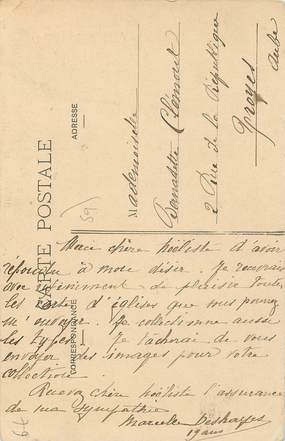 CARTE POSTALE
CORRESPONDANCE
ADRESSE
59
Mademoiselle
Bernadette Clément
2 Rue de la République
Troyes
Aube
Merci chère d'avoir
répondu à mon désir. Je recevrais
avec infiniment de plaisir toutes
les cartes d'églises que vous pourrez
m'envoyer. Je collectionne aussi
les types. Je tâcherai de vous
envoyer des images pour votre
collection.
Recevez chère l'assurance
de ma sympathie
Marcelle Deshayes
19 ans